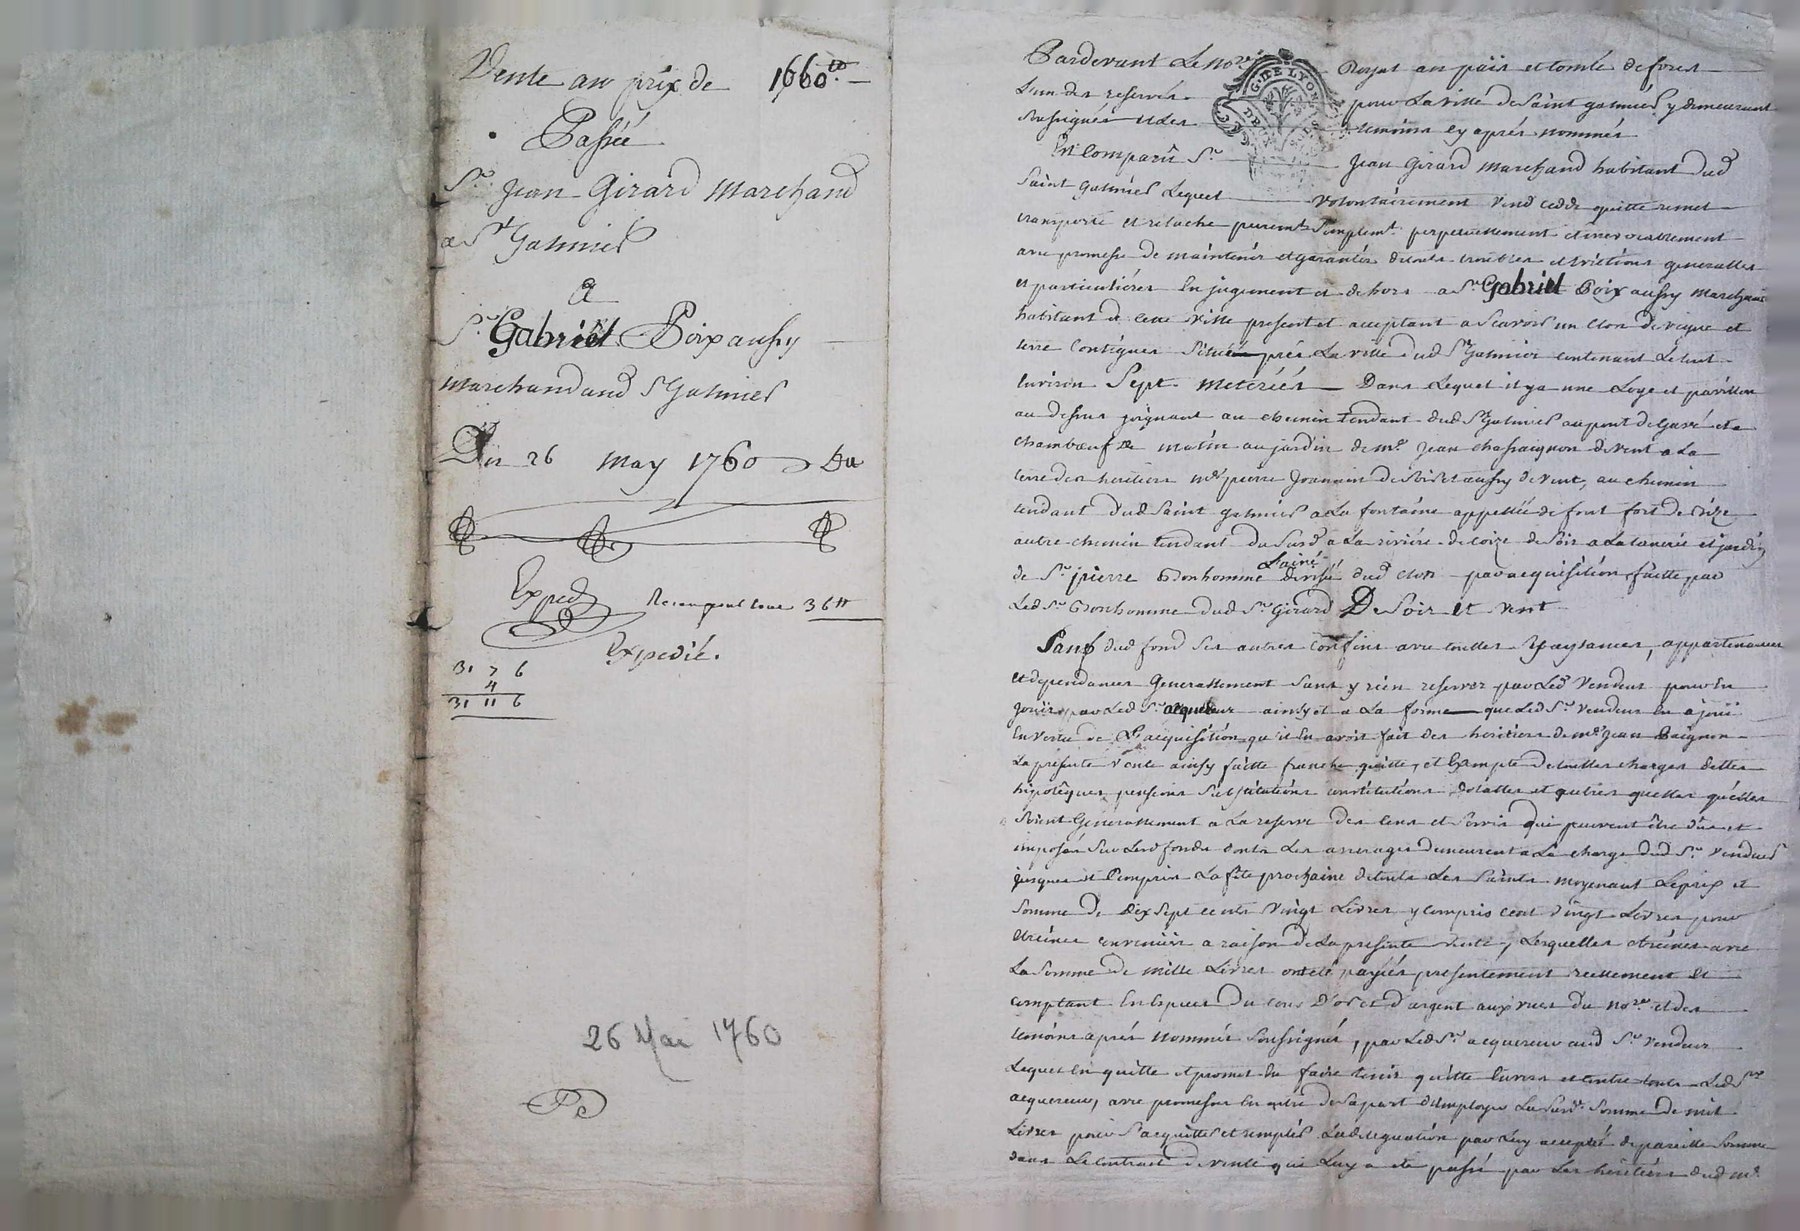 Vente au prix de 1660 #
Passée
Sr. Jean Girard Marchand
a St Galmier
a
Sr. Gabriel Poixaussy
marchand aud St Galmier
Du 26 may 1760 Du
Exped
Receu pour tous 36 #
Expedié.
31 7 6
4
31 11 6
26 Mai 1760
G. DE LYON
Pardevant Le nore Royal au païs et comté de forez
L'un des reservés pour La ville de Saint galmier y demeurant
soussigné et des temoins cy aprés nommés
En Comparu Sr. Jean Girard marchand habitant dud
Saint galmier Lequel volontairement vend cedde quitte remet
transporte et relache puremt. simplemt. perpetuellement et irrevocablement
avec promesse de maintenir et garantir de touts troubles et evictions generalles
et particulières En jugement et dehors a Sr. Gabriel Poixaussy marchand
habitant de cette ville present et acceptant a Scavoir un clos de vigne et
terre Contigues Situées prés La ville dud St galmier contenant Le tout
Environ Sept meterées Dans Lequel il y a une Loge et pavillon
au dessus joignant au chemin tendant dud St galmier au pont de gavé et a
chambœuf de matin au jardin de me. jean chassaignon de vent a La
terre des heritiers me pierre Joannin de soir et aussy de vent, au chemin
tendant dud Saint galmier a La fontaine appellée de font fort de bize
autre chemin tendant du Surd a La riviére de Coize de soir a La tanerie et jardin
de Sr. pierre Bonhomme L'ainé divisé dud clos par acquisition faitte par
Led Sr. Bonhomme dud Sr. Girard De Soir et vent
Sauf dud fond Ses autres Confins avec touttes aysances, appartenances
et dependances Generallement Sans y rien reserver par Led Vendeur pour En
jouir par Led Sr. acquereur ainsy et a La forme que Led Sr. vendeur En a joui
En vertu de L'acquisition qu'il En avoit fait des heritiers de me jean
La presente vente ainsy faitte franche quitte, et Exempte de touttes charges dettes
hipotêques pensions Substitutions constitutions dotalles et autres quelles qu'elles
Soient Generallement a La reserve des Cens et Servis qui peuvent être dûs et
imposés Sur Lesd fonds dont Les arrerages demeurent a La charge dud Sr. Vendeur
jusques et Compris La fête prochaine de touts Les Saints moyenant Le prix et
Somme de dix Sept cents vingt Livres y compris cent vingt Livres pour
etreines convenües a raison de La presente vente, Lesquelles etreines avec
La Somme de mille Livres ont eté payées presentement reellement et
comptant En Especes du cours D'or et d'argent aux vües du nore et des
temoins aprés nommés Soussignés, par Led Sr. acquereur aud Sr. vendeur
Lequel En quitte et promet En faire tenir quitte Envers et contre touts Led Sr.
acquereur, avec promesse En outre de Sa part d'employer La Surd. Somme de mil
Livres pour S'acquitter et remplir La delegation par Luy acceptée de pareille Somme
dans Le Contract de vente qui Luy a eté passé par Les heritiers dud me.